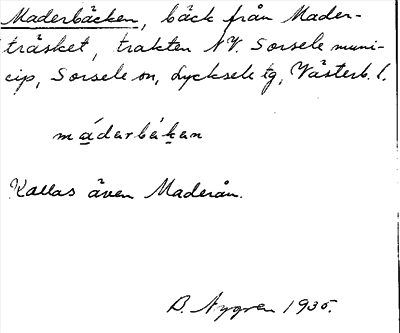 Maderbäcken, bäck från Mader-
träsket, trakten NV. Sorsele muni-
cip, Sorsele sn, Lycksele tg, Västerb. l.
mádarbákan
Kallas även Maderån.
B. Nygren 1935.